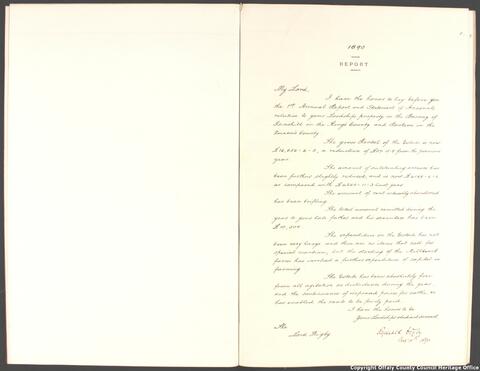 1890
REPORT
My Lord,
I have the honor to lay before you
the 1st Annual Report and Statement of Accounts
relative to your Lordship's property in the Barony of
Geashill in the Kings County and Portion in the
Queen's County
The gross Rental of the Estate is now
a reduction of from the previous
year
The amount of outstanding arrears has
been further slightly reduced, and is now
as compared with last year
The amount of rent actually abandoned
has been trifling
The total amount remitted during the
year to your late father and his securities has been
The expenditure on the Estate has not
been very large and there are no items that call for
special mention, but the stocking of the Millbrook
farm has involved a further expenditure of capital in
farming
The Estate has been absolutely free
from all agitation or disturbance during the year
and the continuance of improved prices for cattle &c
has enabled the rents to be fairly paid
I have the honor to be
Your Lordship's obedient servant
The
Lord Digby
Reginald Digby
1891
Copyright Offaly County Council Heritage Office